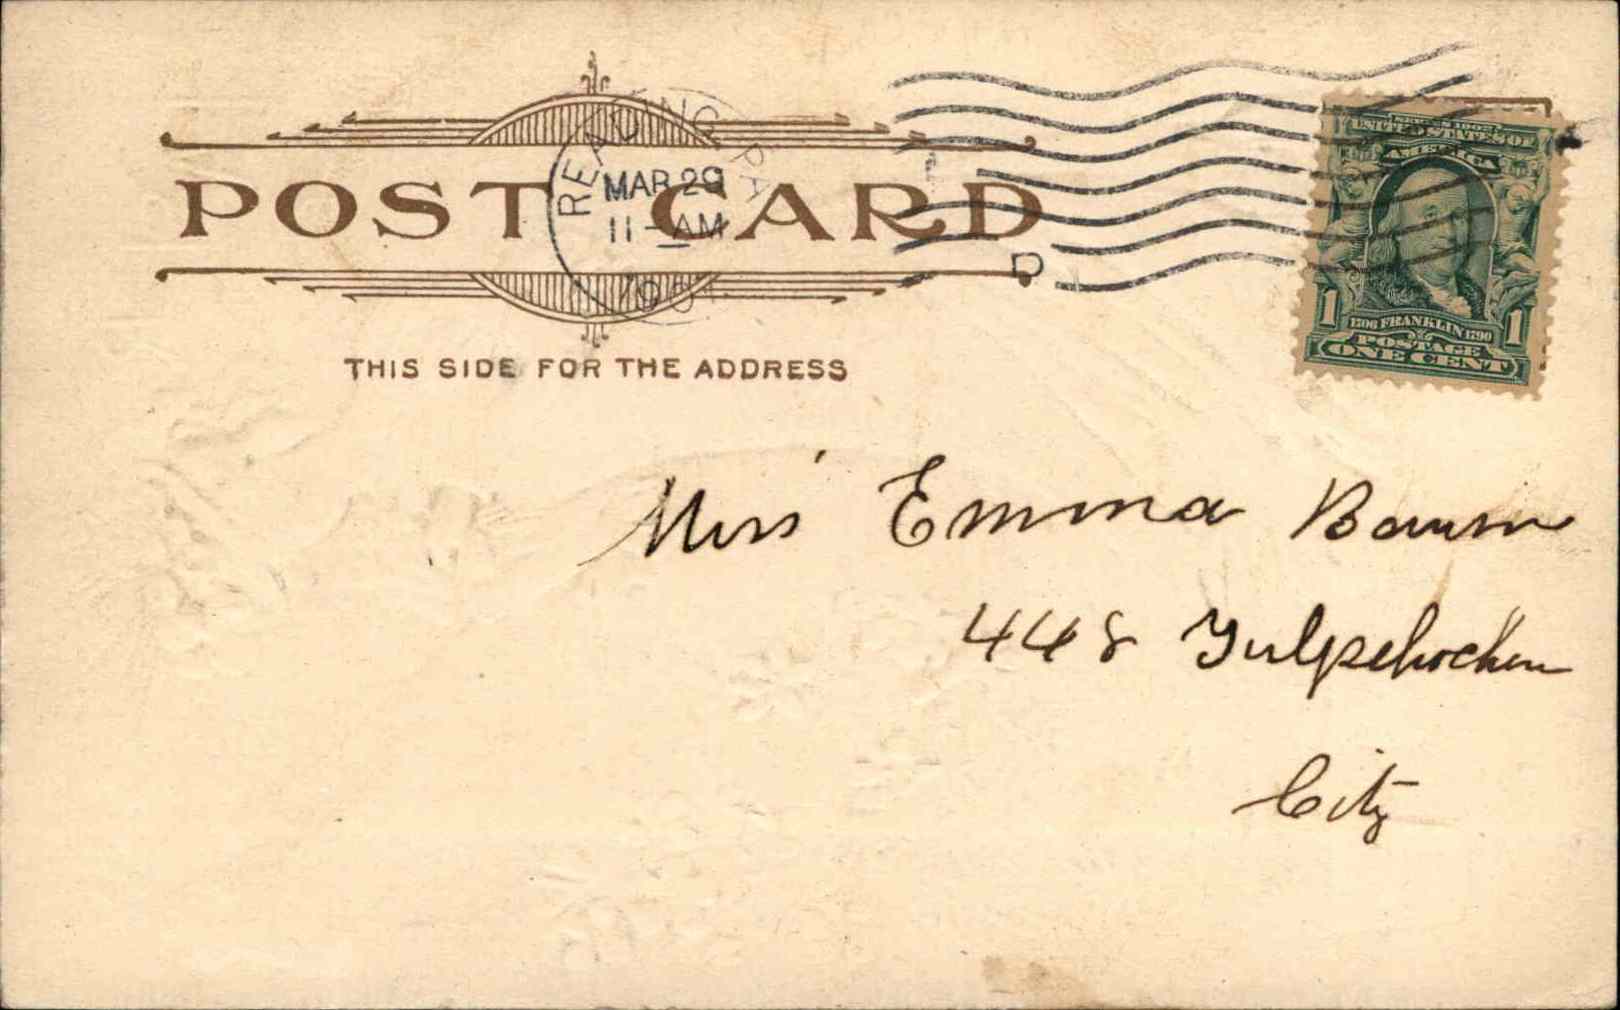 READING PA
MAR 29
11-AM
190
D
POST CARD
THIS SIDE FOR THE ADDRESS
SERIES 1902
UNITED STATES OF
AMERICA
1 1
1706 FRANKLIN 1790
POSTAGE
ONE CENT
Miss Emma
448 Tulpehocken
City